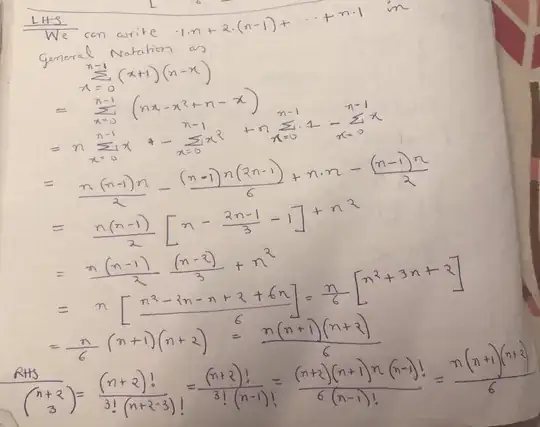 LHS
We can write 1.n + 2.(n-1) + ... + n.1 in
General Notation as
n-1 Σ x=0 (x+1)(n-x)
= n-1 Σ x=0 (nx - x² + n - x)
= n n-1 Σ x=0 x + - n-1 Σ x=0 x² + n n-1 Σ x=0 .1 - n-1 Σ x=0 x
= n(n-1)n/2 - (n-1)n(2n-1)/6 + n.n - (n-1)n/2
= n(n-1)/2 [n - 2n-1/3 - 1] + n²
= n(n-1)/2 (n-2)/3 + n²
= n [n² - 2n - n + 2 + 6n/6] = n/6 [n² + 3n + 2]
= n/6 (n+1)(n+2) = n(n+1)(n+2)/6
RHS
(n+2 3) = (n+2)!/3!(n+2-3)! = (n+2)!/3!(n-1)! = (n+2)(n+1)n(n-1)!/6(n-1)! = n(n+1)(n+2)/6